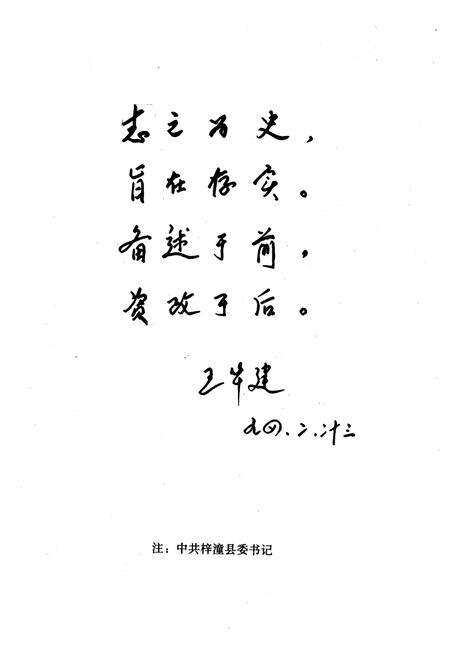 志之为史，
旨在存实。
备述于前，
资攷于后。
王 建
九四.二.廿三
注：中共梓潼县委书记